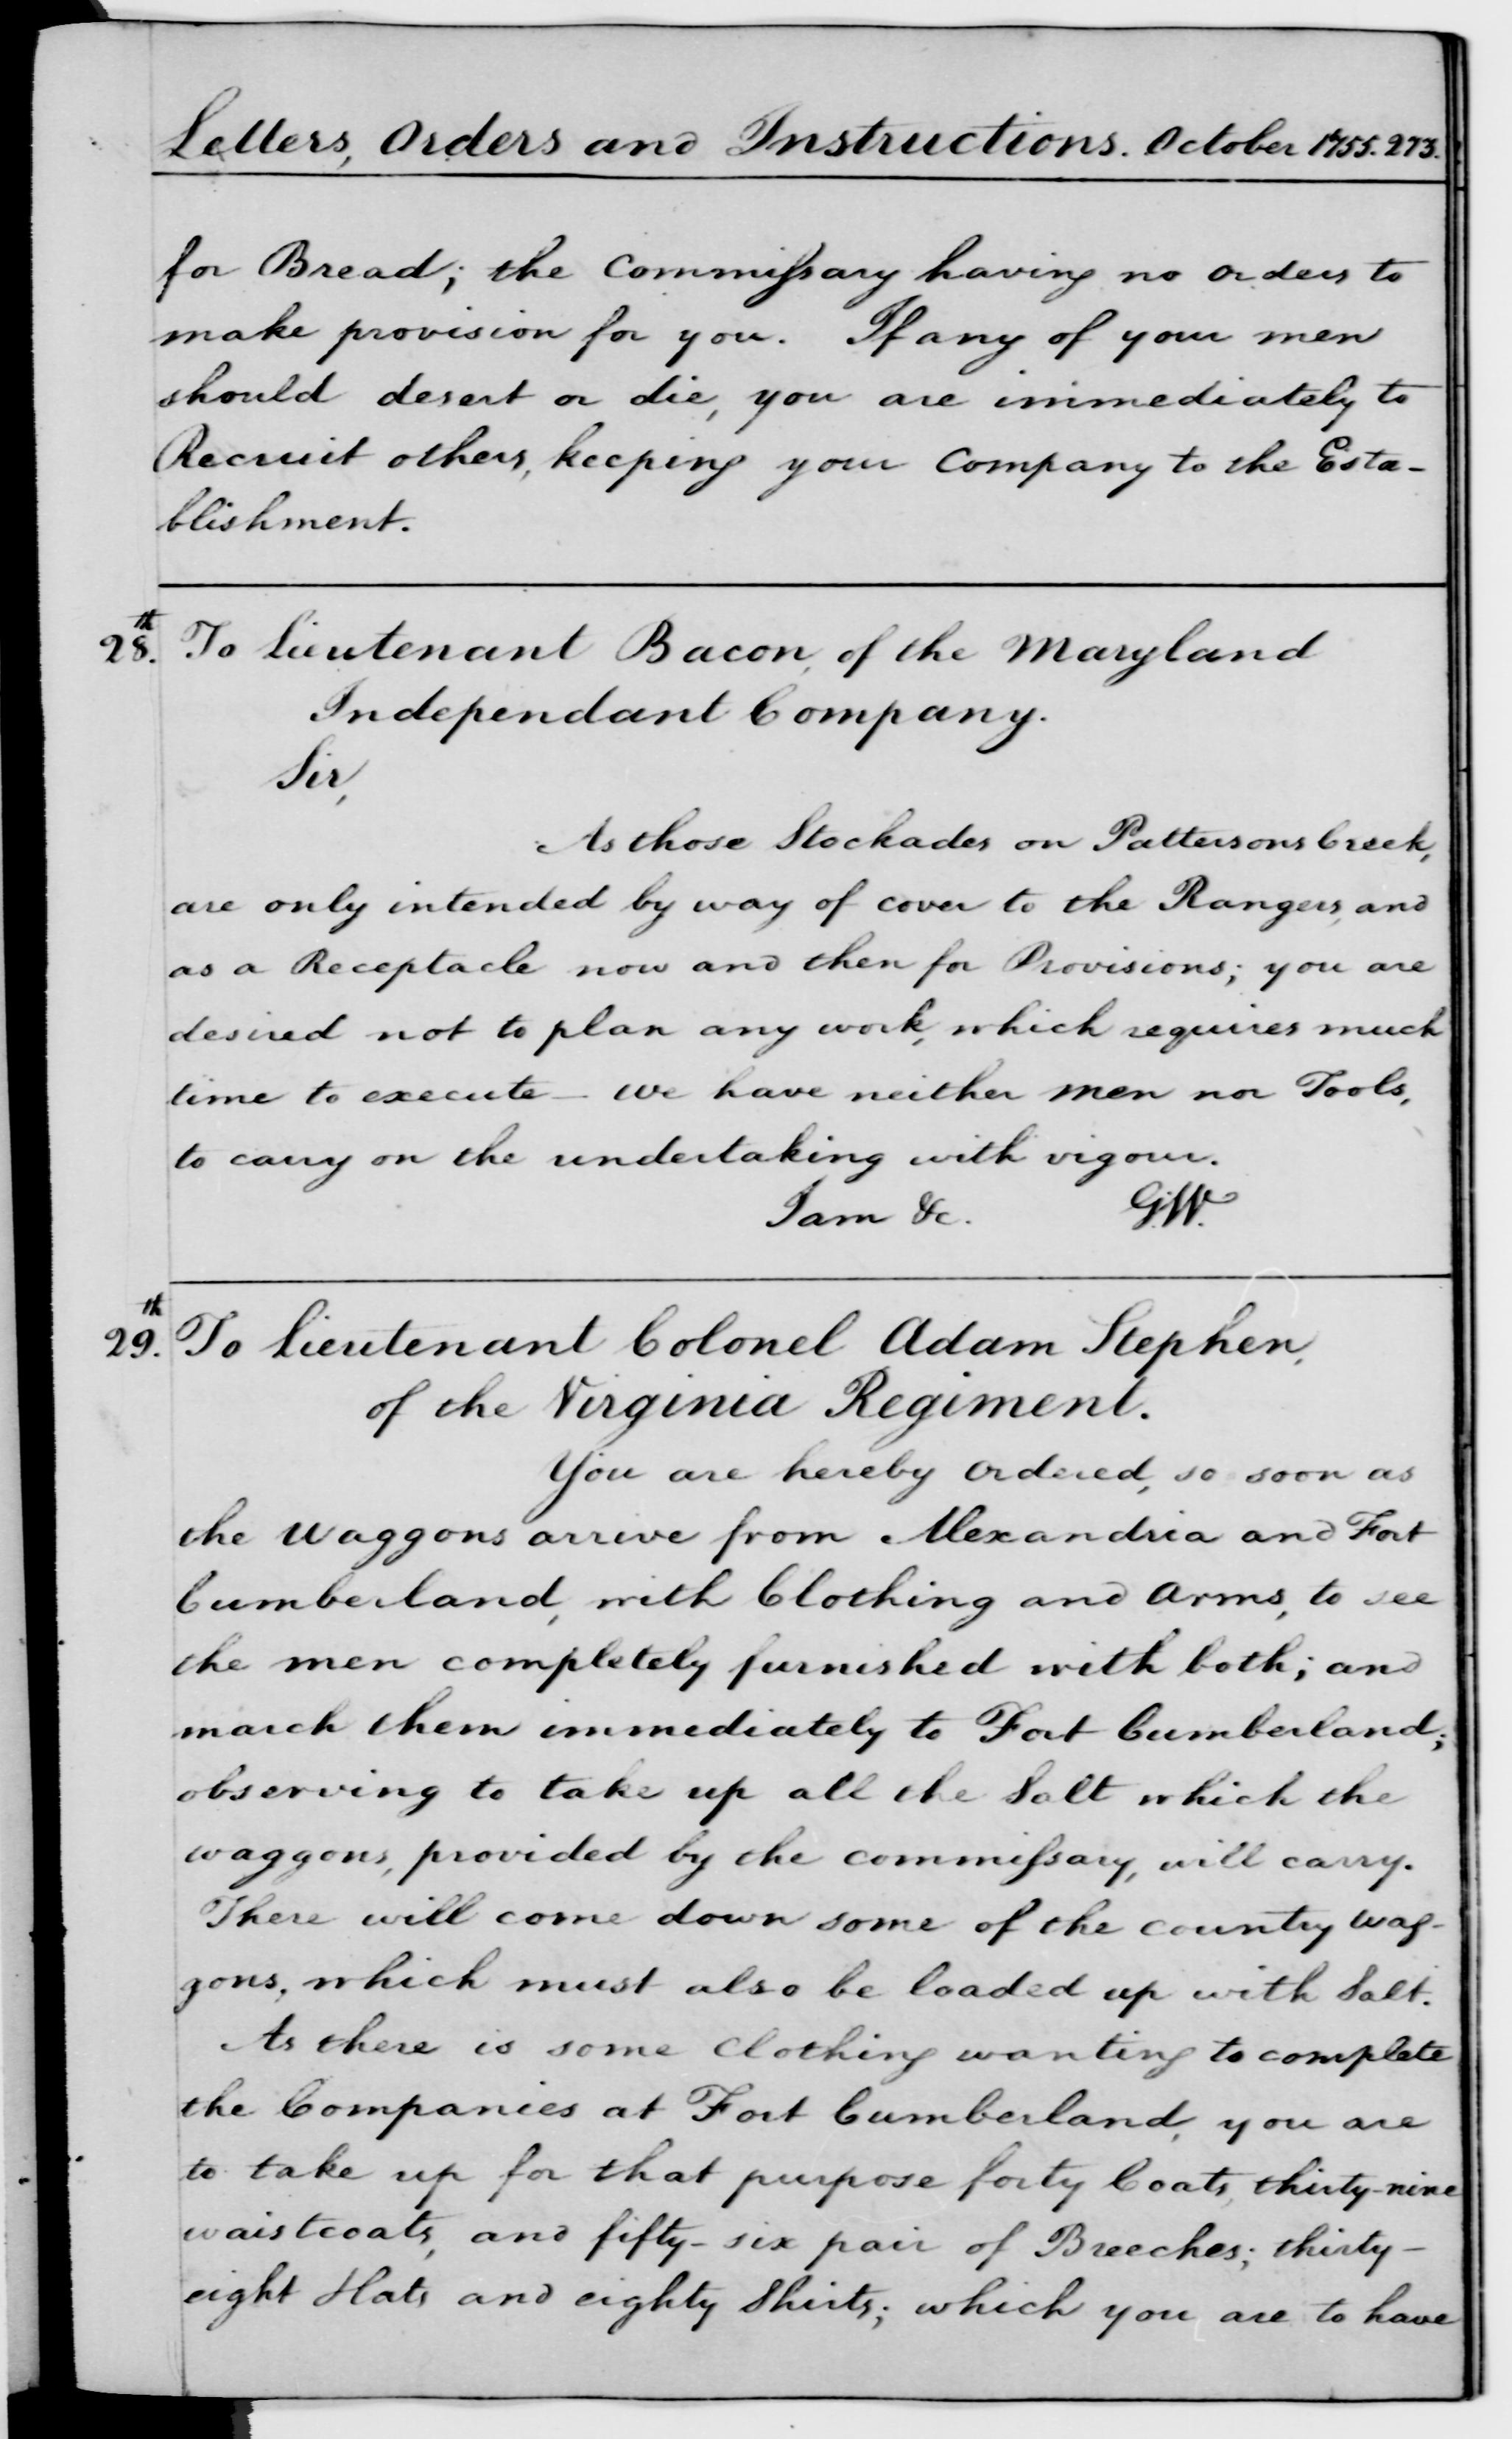 Letters, Orders and Instructions. October 1755. 273.
for Bread; the Commissary having no orders to
make provision for you. If any of your men
should desert or die, you are immediately to
Recruit others, keeping your Company to the Esta-
blishment.
28th. To Lieutenant Bacon, of the Maryland
Independant Company.
Sir,
As those Stockades on Pattersons Creek,
are only intended by way of cover to the Rangers, and
as a Receptacle now and then for Provisions; you are
desired not to plan any work, which requires much
time to execute — we have neither men nor Tools,
to carry on the undertaking with vigour.
I am &c. G.W.
29th. To Lieutenant Colonel Adam Stephen,
of the Virginia Regiment.
You are hereby ordered, so soon as
the Waggons arrive from Alexandria and Fort
Cumberland, with Clothing and Arms, to see
the men completely furnished with both; and
march them immediately to Fort Cumberland;
observing to take up all the Salt which the
waggons, provided by the commissary, will carry.
There will come down some of the country wag-
gons, which must also be loaded up with Salt.
As there is some Clothing wanting to complete
the Companies at Fort Cumberland, you are
to take up for that purpose forty Coats, thirty-nine
waistcoats, and fifty-six pair of Breeches; thirty-
eight Hats and eighty Shirts; which you are to have